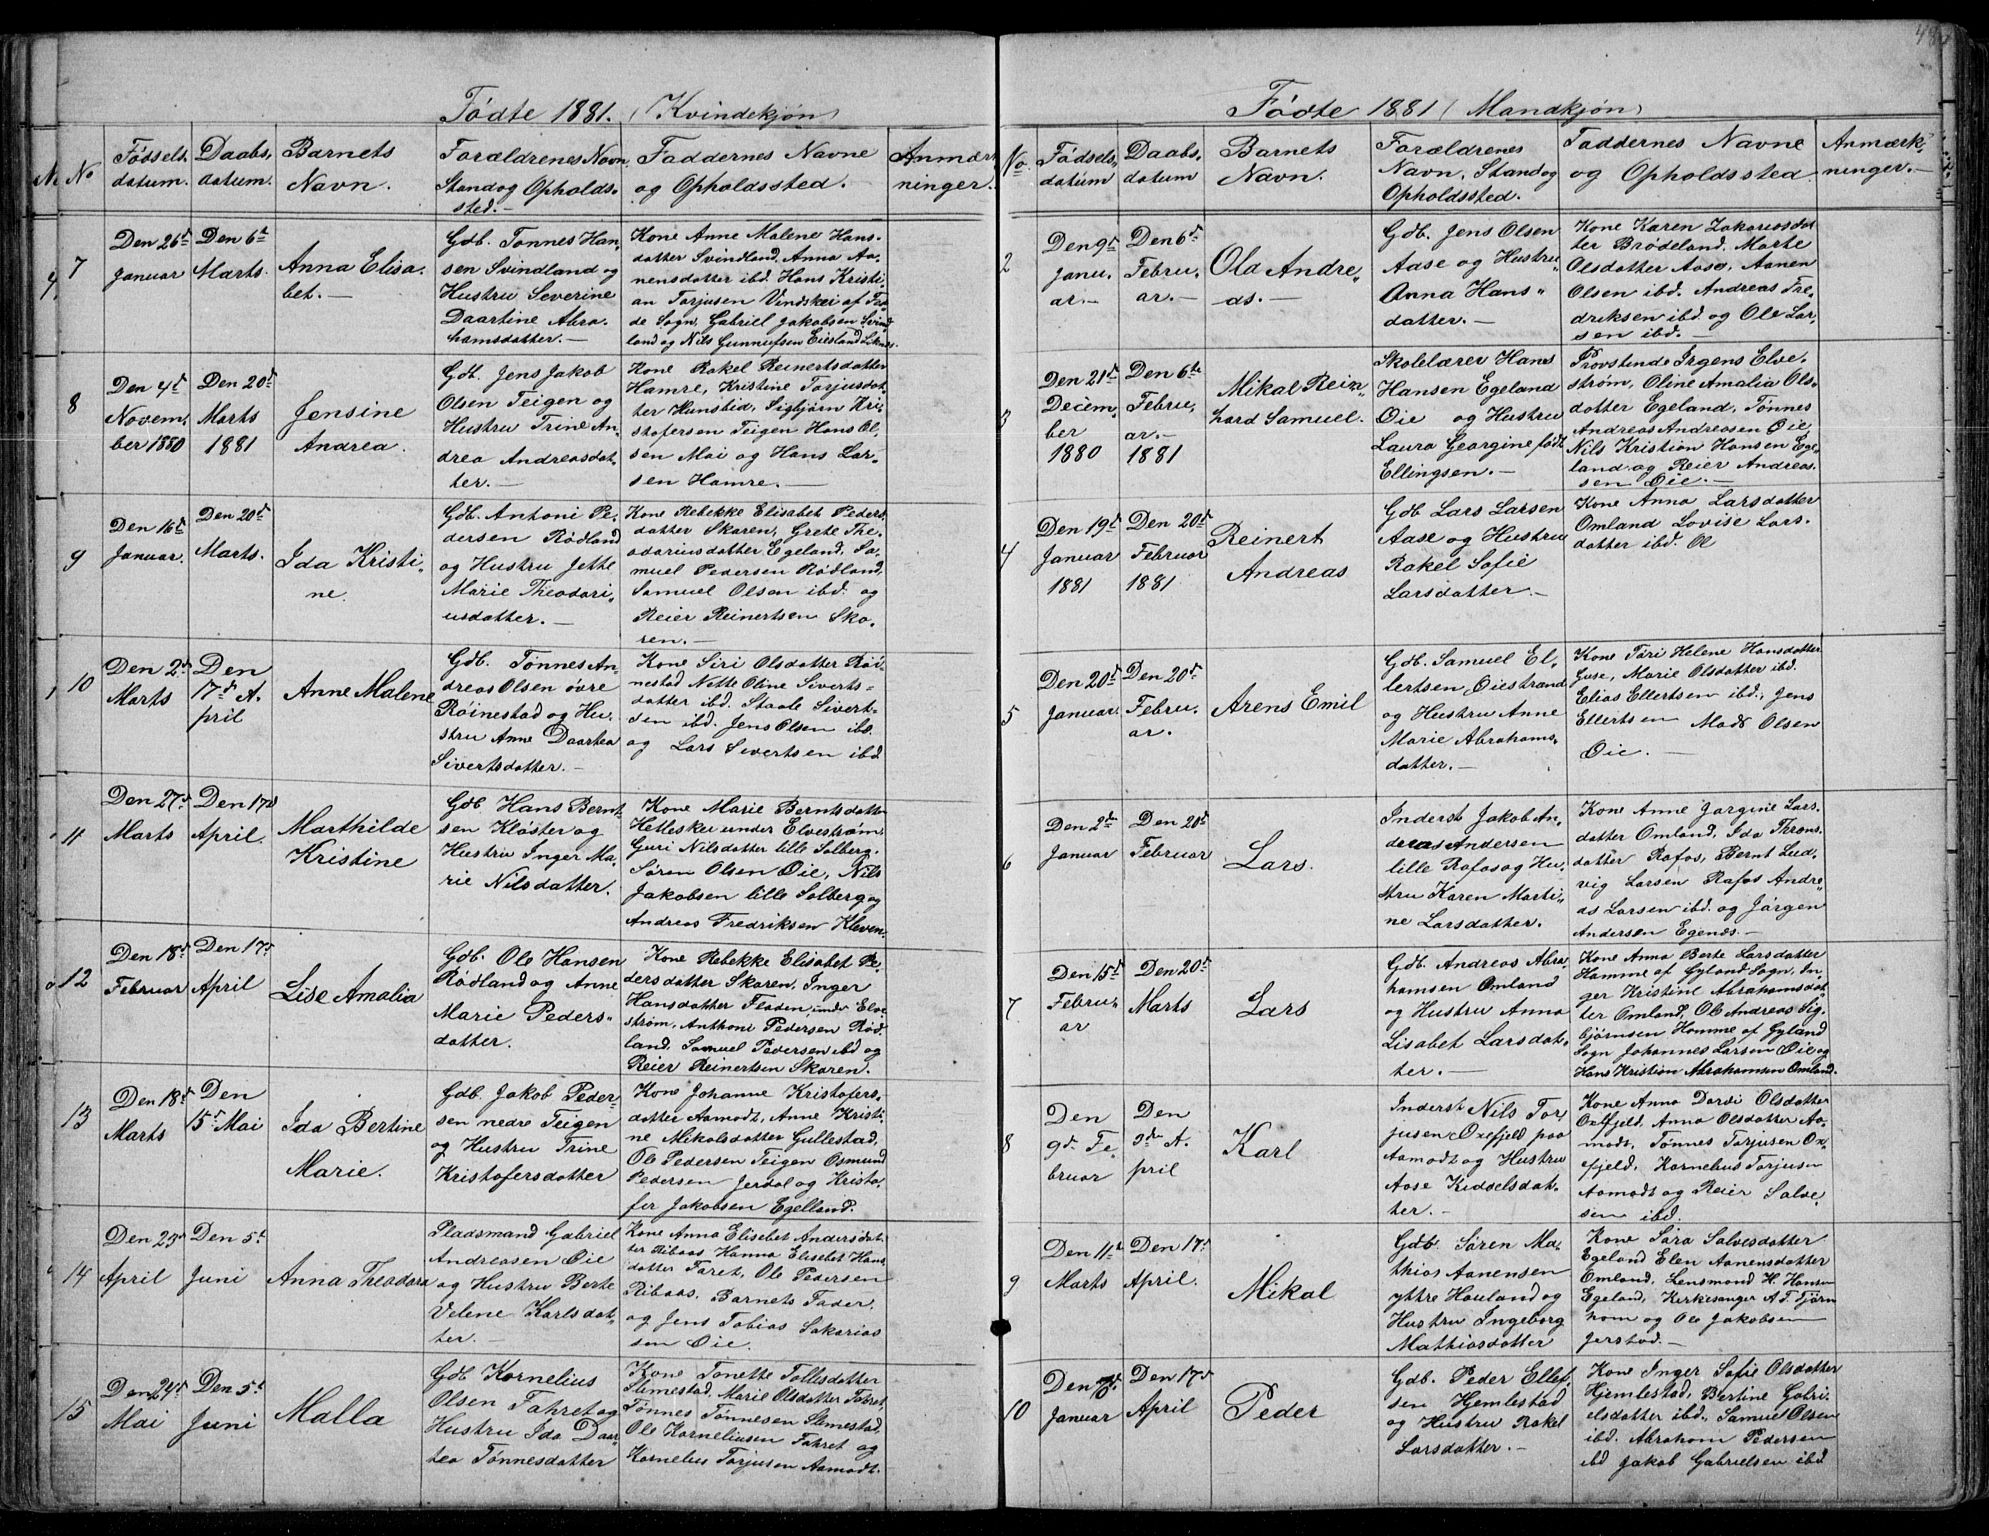 Fødte 1881. (Kvindekjøn)
No
Fødsels
datum.
Daabs,
datum.
Barnets
Navn.
Forældrenes Navn
Stand og Opholds-
sted.-
Faddernes Navne
og Opholdssted.
Anmær-
ninger.
7
Den 26d
Januar
Den 6t
Marts.
Anna Elisa.
bet.-
Gdb. Tønnes Han-
sen Svindland og
Hustru Severine
Daartine Abra.
hamsdatter.-
Kone Anne Malene Hans.
datter Svindland, Anna Aa-
nensdatter ibd. Hans Kristi-
an Torjusen af
Sogn, Gabriel Jakobsen Svind
land og Nils Gunnufsen Eiesland
8
Den 4d
Novem,
ber 1880
Den 20d
Marts
1881
Jensine
Andrea.
Gdb. Jens Jakob
Olsen Teigen og
Hustru Trine An-
drea Andreasdat-
ter.-
Kone Rakel Reinertsdatter
Hamre, Kristine Torjusdat-
ter Hunsbid, Sigbjørn Kri-
stofersen Teigen Hans Ol,
sen Moi og Hans Lar-
sen Hamre.-
9
Den 16d
Januar.
Den 20d
Marts.
Ida Kristi-
ne
Gdb. Antoni Pe-
dersen Rødland
og Hustru Jette
Marie Theodori-
usdatter.-
Kone Rebekke Elisabet Peders
datter Skoren, Grete The-
odoriusdatter Egeland, Sa-
muel Pedersen Rødland,
Samuel Olsen ibd. og
Reier Reinertsen Sko-
ren.-
10
Den 2d
Marts
Den
17d A-
pril
Anne Malene
Gdb. Tønnes An-
dreas Olsen øvre
Røinestad og Hu-
stru Anne Daartea
Sivertsdatter.-
Kone Siri Olsdatter Røi-
nestad Nette Oline Siverts=
datter ibd. Staale Sivert-
sen ibd. Jens Olsen ibd
og Lars Sivertsen ibd
11
Den 27d
Marts
Den 17d
April.
Marthilde
Kristine
Gdb Hans Bernt
sen Kløster og
Hustru Inger Ma-
rie Nilsdatter.
Kone Marie Berntsdatter
Hetlesku under Elvestrøm,
Guri Nilsdatter lille Solberg.
Søren Olsen Øie, Nils
Jakobsen lille Solberg og
Andreas Fredriksen Kleven.
12
Den 18d
Februar
Den 17d
April
Lise Amalia
Gdb. Ole Hansen
Rødland og Anne
Marie Peders-
datter.
Kone Rebekke Elisabet Pe-
dersdatter Skoren, Inger
Hansdatter Fladen, under Elve
strøm, Anthoni Pedersen Rød
land. Samuel Pedersen ibd og
Reier Reinertsen Skoren.
13
Den 18d
Marts
Den
15d Mai
Ida Bertine
Marie.
Gdb. Jakob Peder-
sen nedre Teigen
og Hustru Trine
Kristofersdatter
Kone Johanne Kristofers,
datter Aamodt, Anne Kristi-
ne Mikalsdatter Gullestad,
Ole Pedersen Teigen Osmund
Pedersen Jerdal og Kristo.
fer Jakobsen Egelland.
14
Den 23d
April
Den 5t
Juni
Anna Theodora
Pladsmand Gabriel
Andreasen Øie
og Hustru Berte
Velene Karlsdat-
ter.-
Kone Anna Elisebet Andersdat-
ter Ribaas, Hanna Elisebet Hans
datter Faret, Ole Pedersen
Ribaas, Barnets Fader.
og Jens Tobias Sakarias
sen Øie.
15
Den 24d
Mai
Den 5t
Juni
Malla
Gdb Kornelius
Olsen Fahret og
Hustru Ida Daar
tea Tønnesdatter
Kone Tonette Tollisdatter
Slimestad, Marie Olsdatter Fahret,
Tønnes Tønnesen Slimestad,
Ole Korneliusen Fahret og
Kornelius Torjusen Aamodt.
Fødte 1881 (Mandkjøn)
No.
Fødsels,
datum
Daabs-
datum
Barnets
Navn.
Forældrenes
Navn, Stand og
Opholdssted.
Faddernes Navne
og Opholdssted
Anmærk-
ninger.-
2
Den 9d
Janu-
ar.-
Den 6d
Febru-
ar.-
Ola Andre-
as.-
Gdb. Jens Olsen
Aase og Hustru
Anna Hans-
datter.-
Kone Karen Zakariasdat
ter Brødeland, Marte
Olsdatter Aase, Aanen
Olsen ibd. Andreas Fre-
driksen ibd og Ole Lar-
sen ibd.
3
Den 21d
Decem-
ber
1880
Den 6te
Febru-
ar.-
1881
Mikal Rein-
hard Samuel.
Skolelærer Hans
Hansen Egeland
Øie og Hustru
Laura Georgine født
Ellingsen.-
Provstinde Irgens Elve.
strøm, Oline Amalia Ols-
datter Egeland, Tønnes
Andreas Andreasen Øie,
Nils Kristian Hansen Ege-
land og Reier Andreas.
sen Øie.-
4
Den 19d
Januar
1881
Den 20d
Februar
1881
Reinert
Andreas
Gdb Lars Larsen
Aase og Hustru
Rakel Sofie
Larsdatter.-
Kone Anna Larsdatter
Omland Lovise Lars.
datter ibd. Ol
5
Den 20d
Januar.
Den 20d
Febru-
ar.
Arens Emil
Gdb. Samuel El-
lertsen Øiestrand
og Hustru Anne
Marie Abrahams.
datter.-
Kone Tori Helene Hansdatter
Guse, Marie Olsdatter ibd.
Elias Ellertsen ibd., Jens
Ellertsen Mads Olsen
Øie.-
6
Den 2den
Januar
Den 20d
Februar
Lars.
Inderst Jakob An-
dreas Andersen
lille Rafos og Hu-
stru Karen Marti-
ne Larsdatter.
Kone Anne Jørgine Lars.
datter Omland, Ida Throns.
datter Rafos, Bernt Lud-
vig Larsen Rafos Andre-
as Larsen ibd. og Jørgen
Andersen Egenes.-
7
Den 15d
Febru-
ar
Den 20d
Marts
Lars
Gdb. Andreas Abra-
hamsen Omland
og Hustru Anna
Lisabet Larsdat-
ter.-
Kone Anna Berte Larsdatter
Homme af Gyland Sogn, In-
ger Kristine Abrahamsdat
ter Omland, Ole Andreas Sig-
bjørnsen Homme af Gyland
Sogn Johannes Larsen Øie og
Hans Kristian Abrahamsen Omland.
8
Den
9d Fe-
bruar
Den
3die A-
pril
Karl
Inderst Nils Tor
jusen Oxefjeld paa
Aamodt og Hustru
Aase Kiddelsdat-
ter.-
Kone Anna Dordi Olsdatter
Oxefjeld, Anna Olsdatter Aa-
modt, Tønnes Torjusen Ox-
efjeld, Kornelius Torjusen
Aamodt og Reier Salve-
sen ibd.
9
Den 11t
Marts
Den 17d
April.
Mikal
Gdb. Søren Ma-
thias Aanensen
yttre Houland og
Hustru Ingeborg
Mathiasdatter
Kone Sara Salvesdatter
Egeland Elen Aanensdatter
Omland, Lensmand H. Hansen
Egeland, Kirkesanger A. T. Tjørn
hom og Ole Jakobsen
Jerstad.-
10
Den
Januar
Den 17d
April
Peder
Gdb. Peder Ellef-
sen Hjemlestad
og Hustru Rakel
Larsdatter.-
Kone Inger Sofie Olsdatter
Hjemlestad, Bertine Gabri-
elsdatter ibd., Samuel Olsen
ibd. Abraham Pedersen
ibd Jakob Gabrielsen ibd